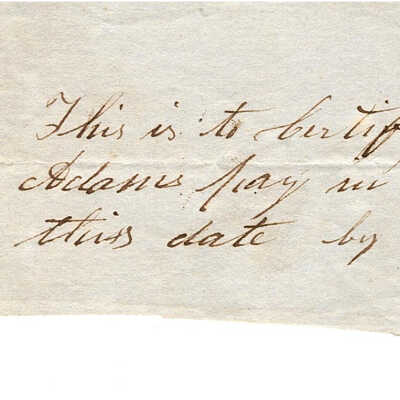 This is to certif
Adams pay in
this date by